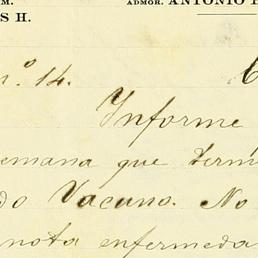 M. ADMOR. ANTONIO
S H.
n.º 14.
Informe
emana que term
do Vacuno. No
nota enfermeda